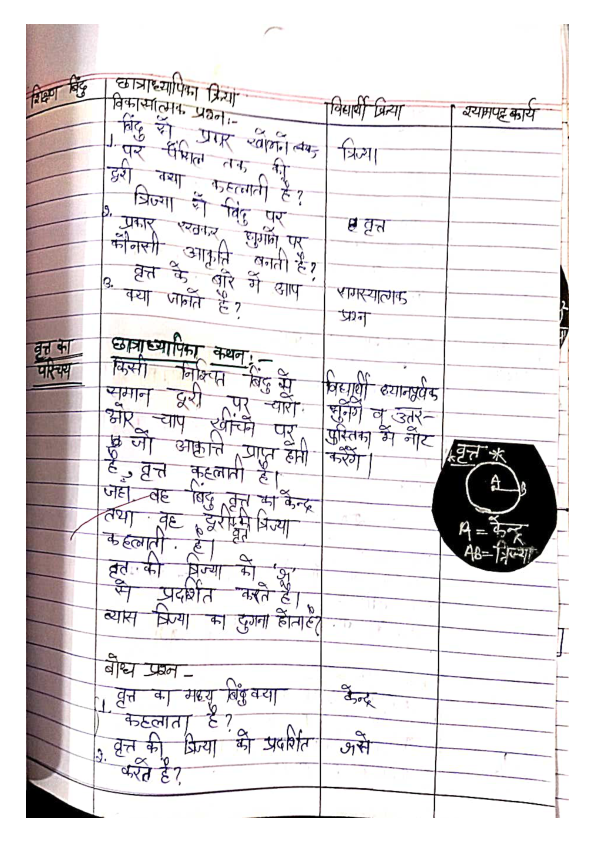 शिक्षण बिंदु
छात्राध्यापिका क्रिया
विद्यार्थी क्रिया
श्यामपट्ट कार्य
विकासात्मक प्रश्न:-
1. बिंदु से प्रकार खींचने
पर पेंसिल तक की
दूरी क्या कहलाती है?
त्रिज्या
2. त्रिज्या से बिंदु पर
प्रकार रखकर घुमाने पर
कौनसी आकृति बनती है?
वृत्त
3. वृत्त के बारे में आप
क्या जानते है?
समस्यात्मक
प्रश्न
वृत्त का
परिचय
छात्राध्यापिका कथन:-
किसी निश्चित बिंदु से
समान दूरी पर चारों
ओर चाप खींचने पर
जो आकृति प्राप्त होती
है, वृत्त कहलाती है।
जहाँ वह बिंदु वृत्त का केन्द्र
तथा वह दूरी वृत त्रिज्या
कहलाती है।
वृत की त्रिज्या को 'r'
से प्रदर्शित करते है।
व्यास त्रिज्या का दुगना होता है?
विद्यार्थी ध्यानपूर्वक
सुनेंगे व उत्तर-
पुस्तिका में नोट
करेंगे।
*वृत्त*
A
B
A = केन्द्र
AB = त्रिज्या
बोध प्रश्न -
1. वृत्त का मध्य बिंदु क्या
कहलाता है?
केन्द्र
2. वृत्त की त्रिज्या को प्रदर्शित
करते है?
r से